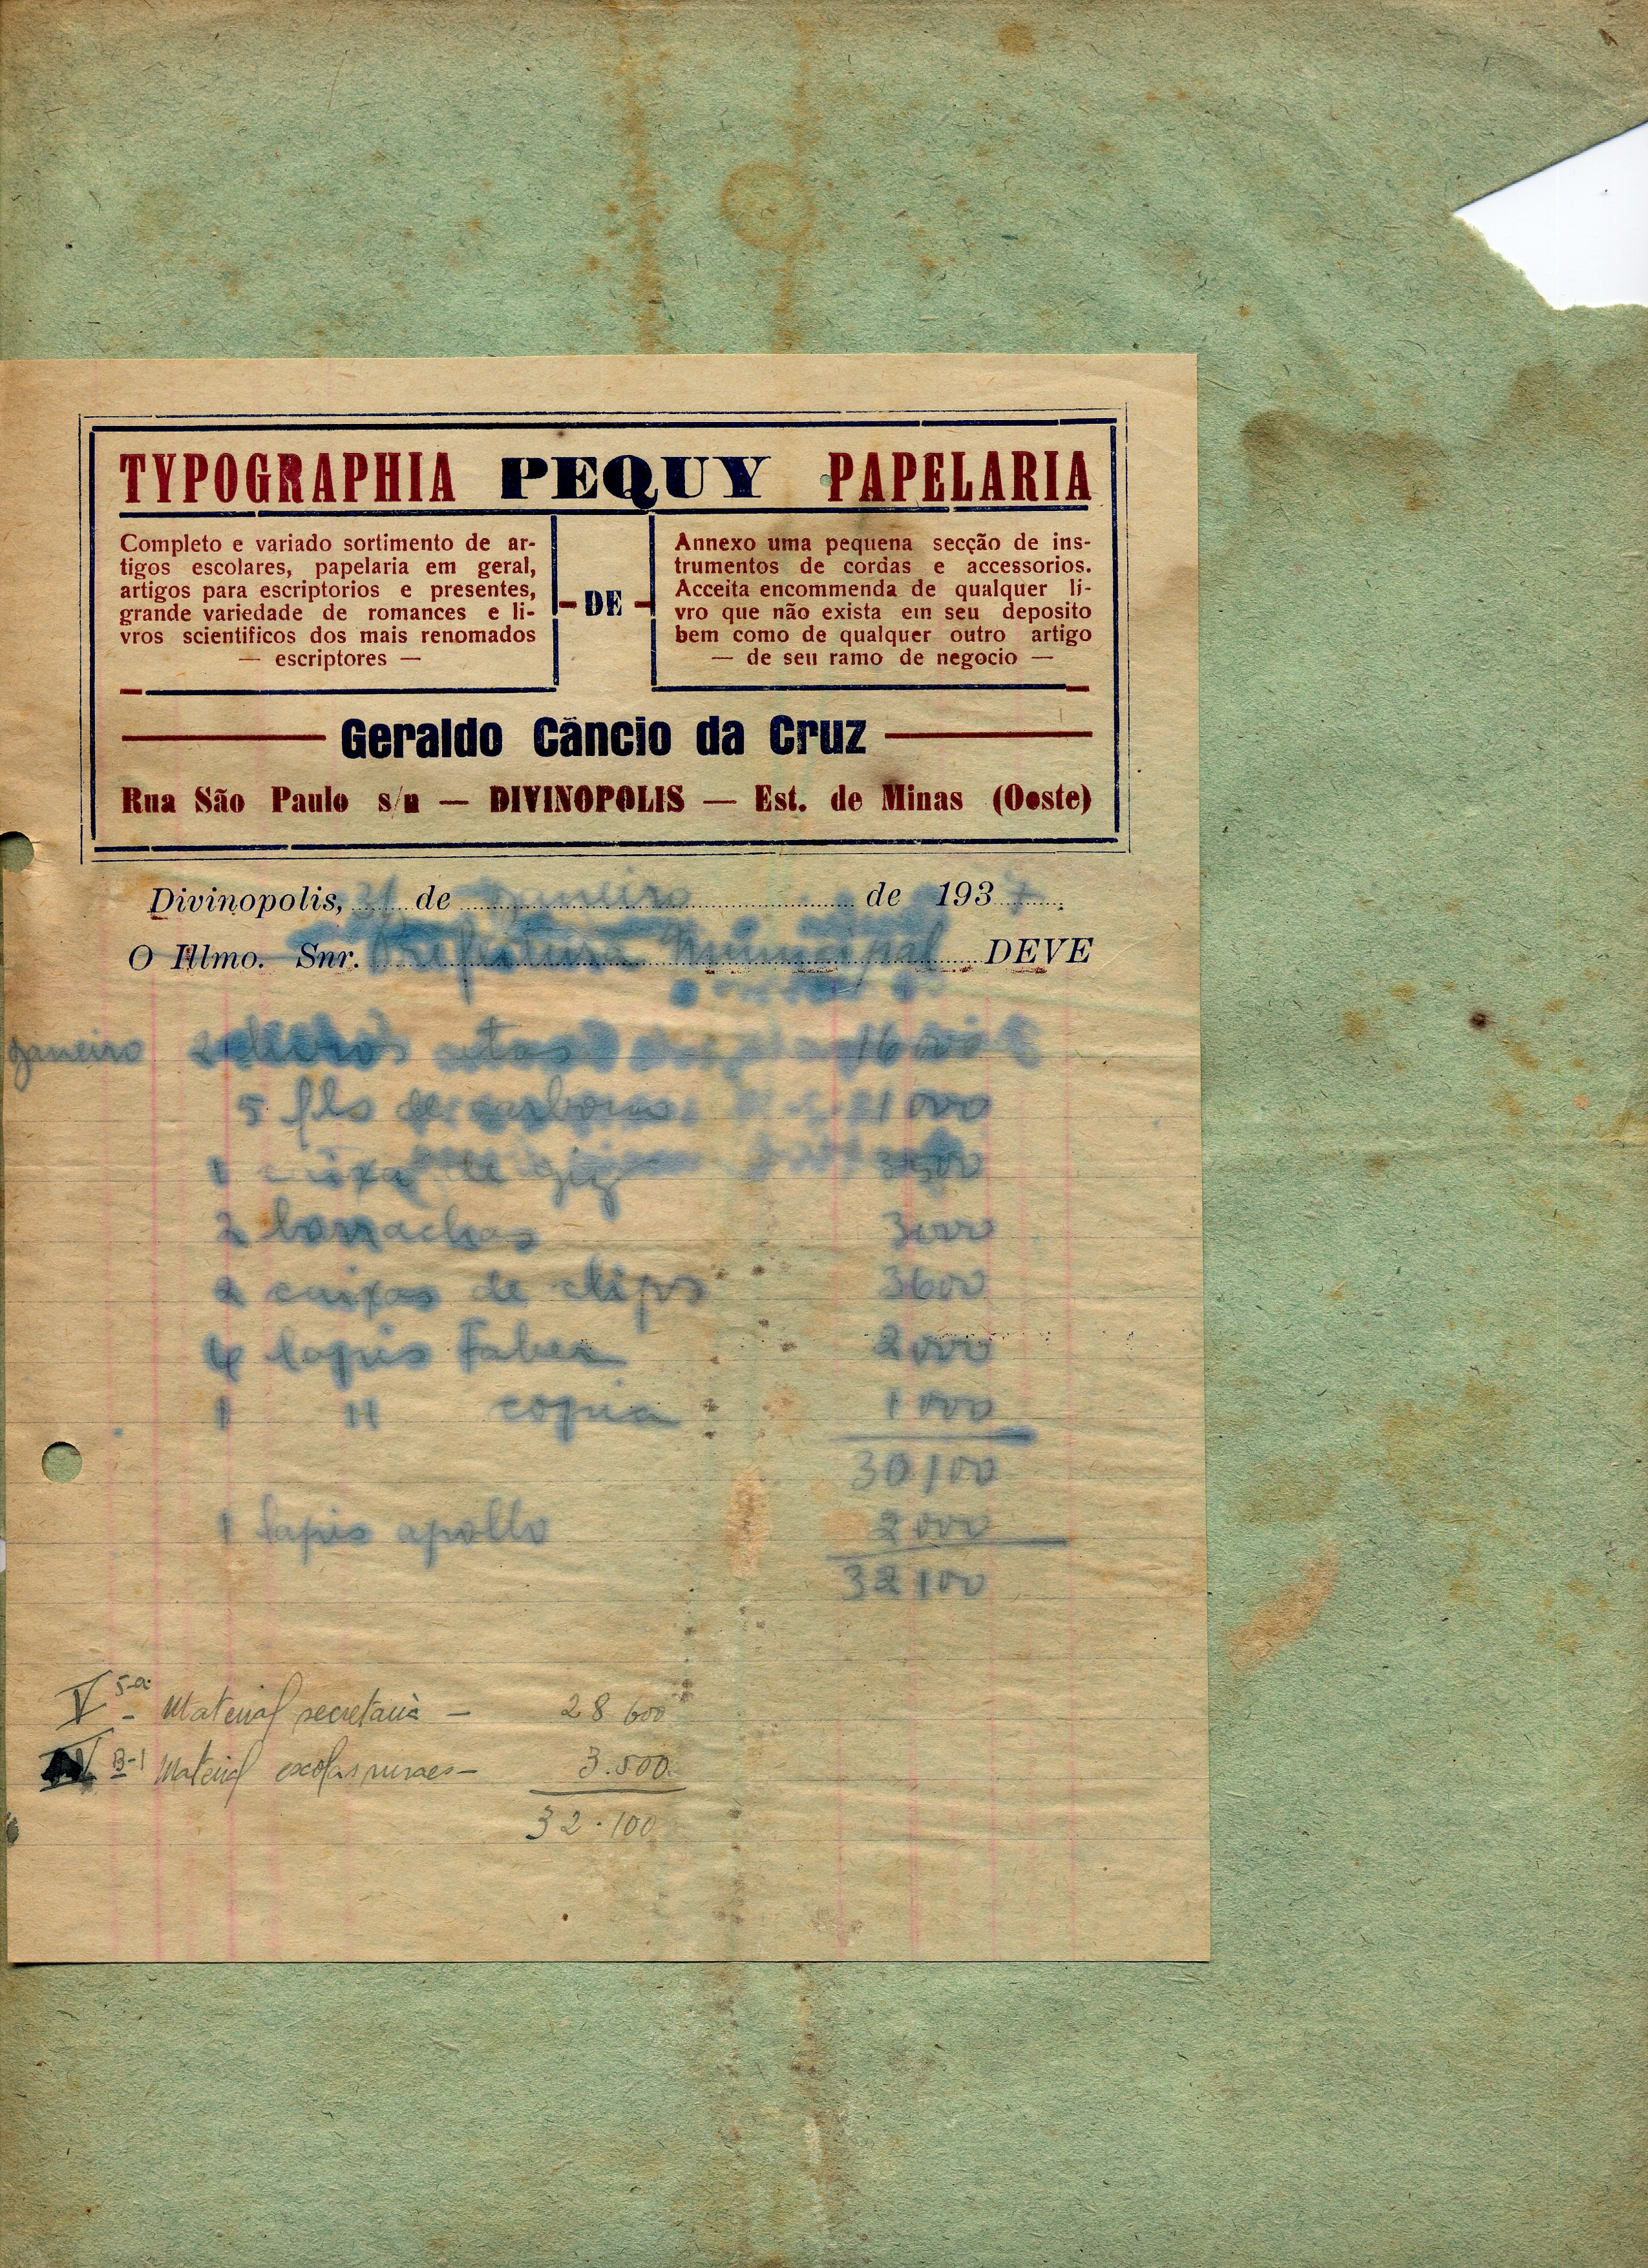 TYPOGRAPHIA PEQUY PAPELARIA
Completo e variado sortimento de ar-
tigos escolares, papelaria em geral,
artigos para escriptorios e presentes,
grande variedade de romances e li-
vros scientificos dos mais renomados
— escriptores —
- DE -
Annexo uma pequena secção de ins-
trumentos de cordas e accessorios.
Acceita encommenda de qualquer li-
vro que não exista em seu deposito
bem como de qualquer outro artigo
— de seu ramo de negocio —
Geraldo Câncio da Cruz
Rua São Paulo s/n — DIVINOPOLIS — Est. de Minas (Oeste)
Divinopolis, 31 de Janeiro de 1937
O Illmo. Snr. Prefeitura Municipal DEVE
Janeiro 2 livros atas 16000
5 fls de carbono 1000
1 caixa de giz 3500
2 borrachas 3000
2 caixas de clips 3600
4 lapis Faber 2000
1 " copia 1000
30100
1 lapis apollo 2000
32100
V 5-a - Material secretaria — 28 600
B-1 Material escolas ruraes — 3.500
32.100